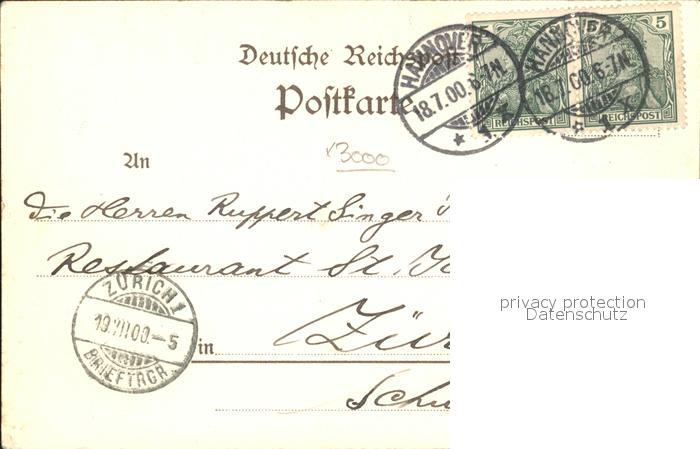 Deutsche Reichspost
Postkarte
5 5
REICHSPOST REICHSPOST
HANNOVER
18.7.00.6-7N.
HANNOVER
18.7.00.6-7N.
3000
An
Die Herren Ruppert Singer
Restaurant St.
ZÜRICH 1
19.VII.00.-5
BRIEFTRGR.
in Zür
Schw
privacy protection
Datenschutz